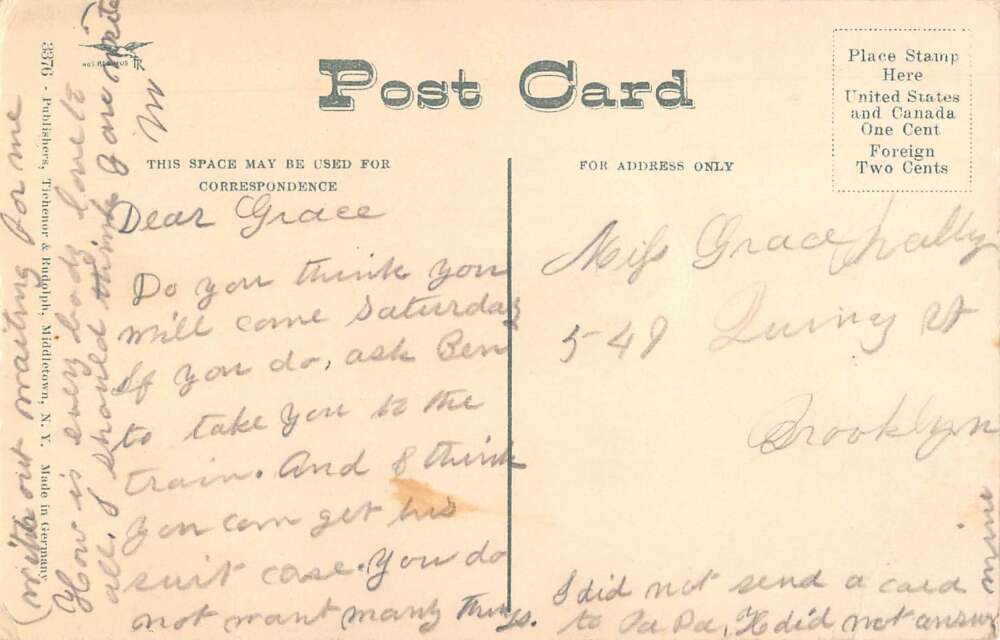 Post Card
THIS SPACE MAY BE USED FOR
CORRESPONDENCE
FOR ADDRESS ONLY
Place Stamp
Here
United States
and Canada
One Cent
Foreign
Two Cents
3376 - Publishers, Tichenor & Rudolph, Middletown, N. Y. Made in Germany.
Dear Grace
Do you think you
will come Saturday
If you do, ask Ben
to take you to the
train. And I think
you can get his
suit case. You do
not want many things.
How is every body love to
all. I should think you write
(with out waiting for me
Miss Grace
549 Quincy St
Brooklyn
I did not send a card
to PaPa, He did not answer
mine